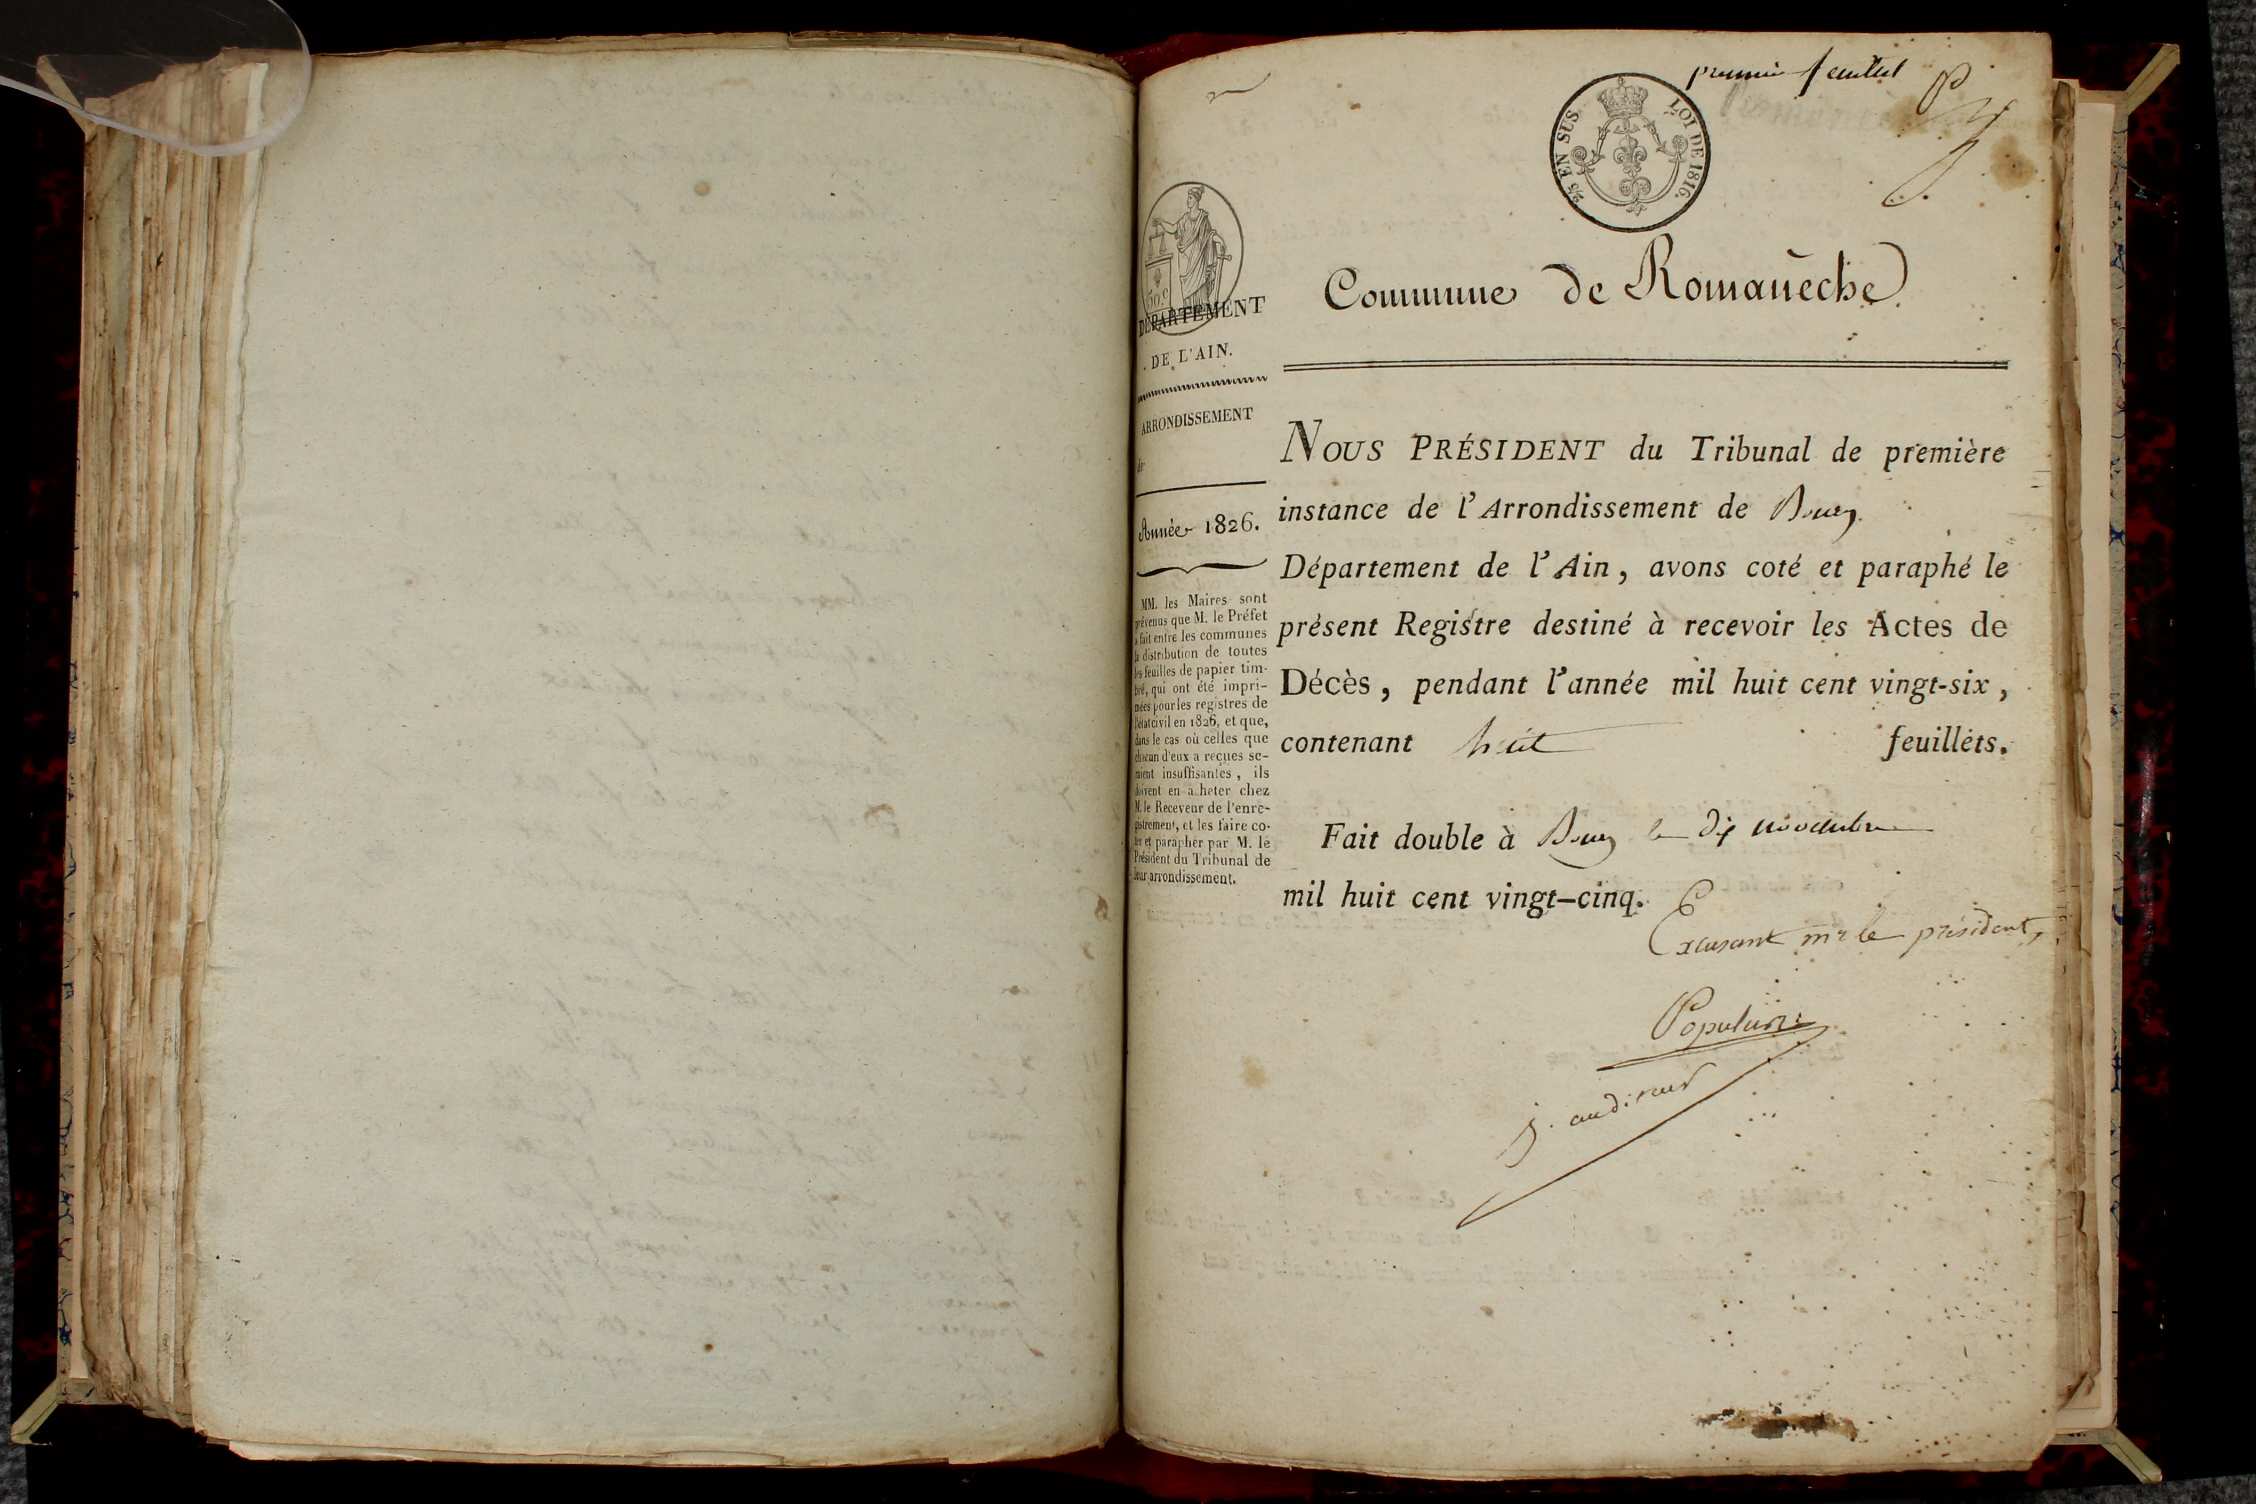 premier feuillet
2/5 EN SUS.
LOI DE 1816.
50.c
DÉPARTEMENT
DE L'AIN.
ARRONDISSEMENT
de
Année 1826.
MM. les Maires sont
prévenus que M. le Préfet
a fait entre les communes
la distribution de toutes
les feuilles de papier tim-
bré, qui ont été impri-
mées pour les registres de
l'état civil en 1826, et que,
dans le cas où celles que
chacun d'eux a reçues se-
raient insuffisantes, ils
doivent en acheter chez
M. le Receveur de l'enre-
gistrement, et les faire co-
ter et parapher par M. le
Président du Tribunal de
leur arrondissement.
Commune de Romanèche
NOUS PRÉSIDENT du Tribunal de première
instance de l'Arrondissement de Bourg
Département de l'Ain, avons coté et paraphé le
présent Registre destiné à recevoir les Actes de
Décès, pendant l'année mil huit cent vingt-six,
contenant huit feuillets.
Fait double à Bourg le dix novembre
mil huit cent vingt-cinq.
Excusant mr le président,
Populus
j. auditeur